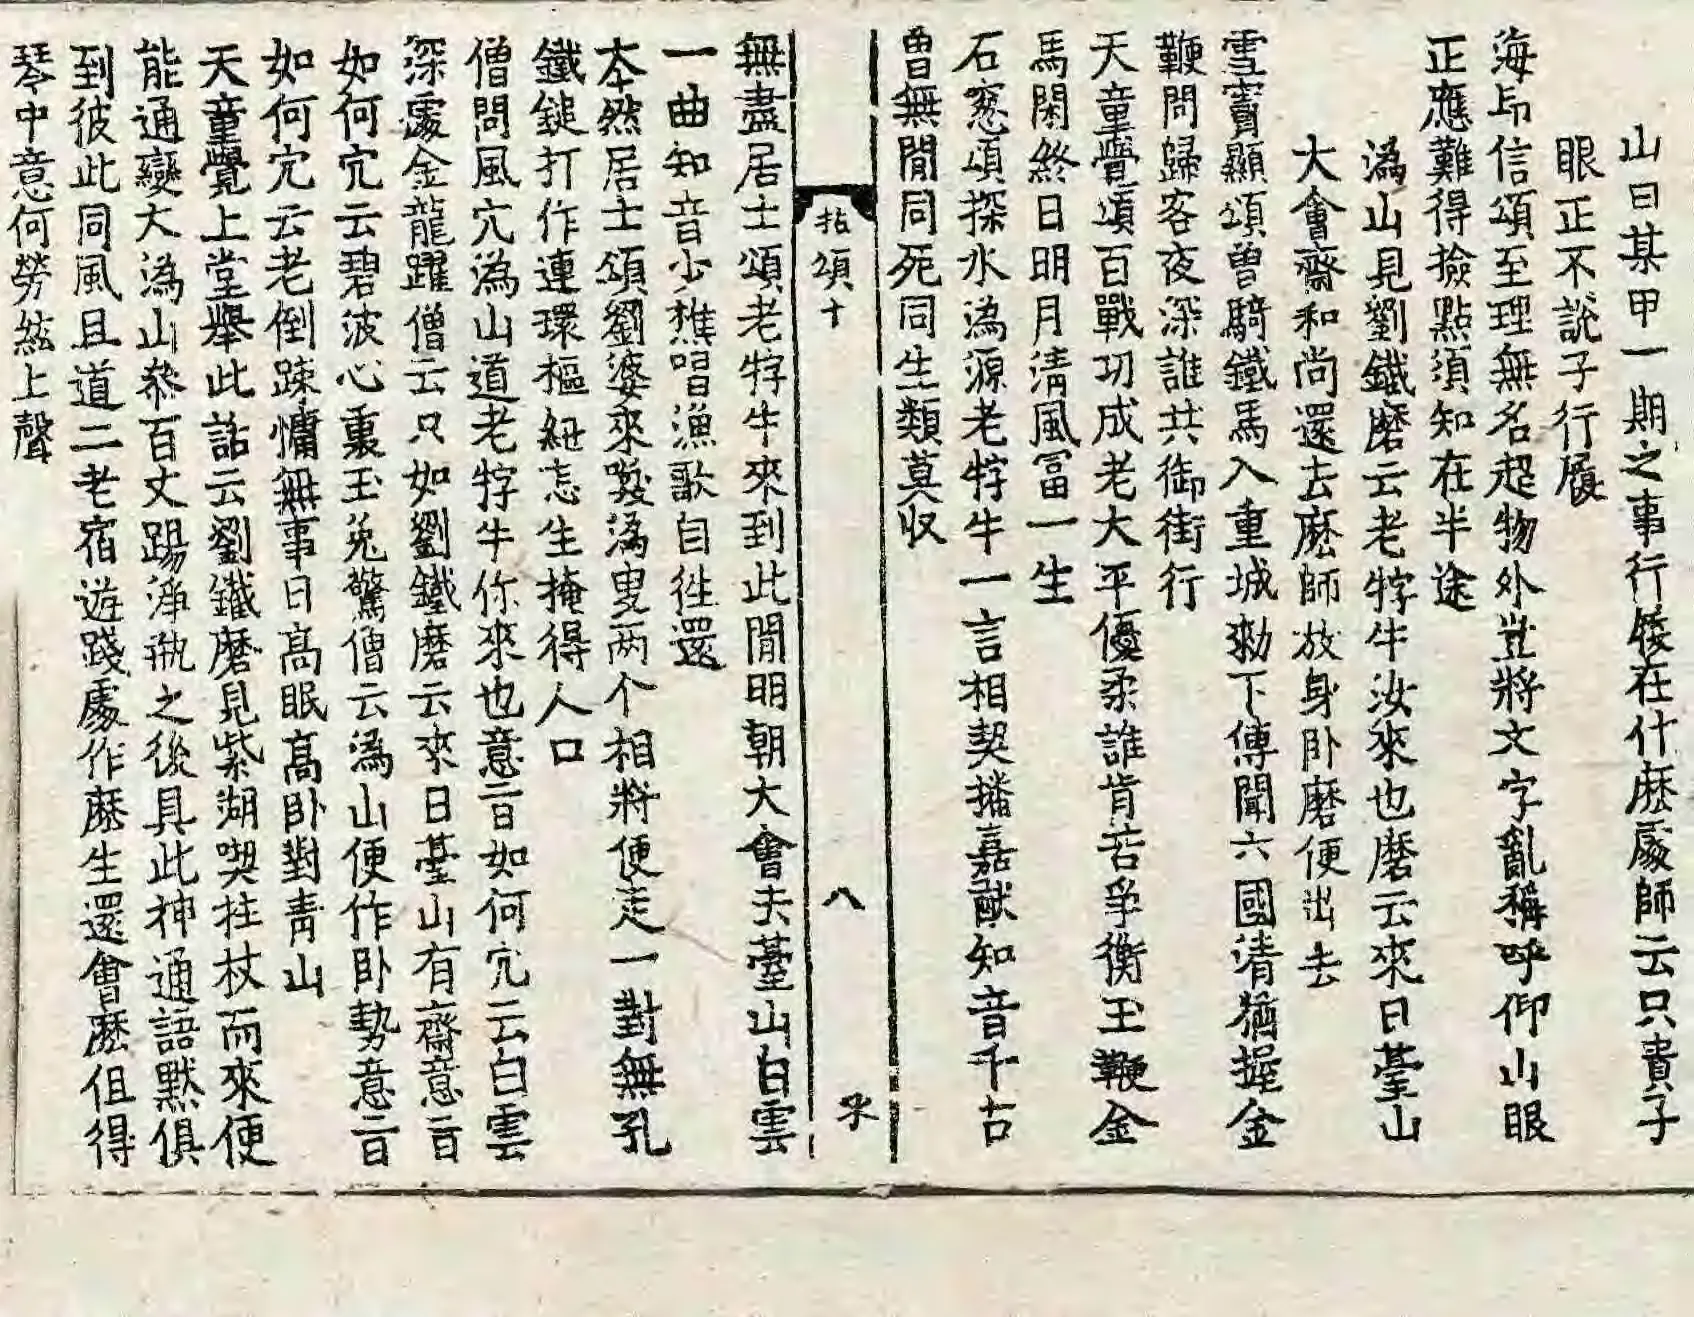 山曰某甲一期之事行履在什麽處師云只貴子
眼正不說子行履
海印信頌至理無名起物外豈將文字亂稱呼仰山眼
正應難得撿點須知在半途
潙山見劉鐵磨云老牸牛汝來也磨云來日臺山
大會齋和尚還去麽師放身卧磨便出去
雪竇顯頌曽騎鐵馬入重城勑下傳聞六國清猶握金
鞭問歸客夜深誰共御街行
天童覺頌百戰功成老大平優柔誰肯苦爭衡玉鞭金
馬閑終日明月清風冨一生
石窓頌探水潙源老牸牛一言相契播嘉猷知音千古
曽無間同死同生類莫收
拈頌十 八
無盡居士頌老牸牛來到此間明朝大會去臺山白雲
一曲知音少樵唱漁歌自徃還
本然居士頌劉婆來喚潙叟兩个相將便走一對無孔
鐵鎚打作連環樞紐忘生掩得人口
僧問風穴潙山道老牸牛你來也意旨如何穴云白雲
深處金龍躍僧云只如劉鐵磨云來日臺山有齋意旨
如何穴云碧波心裏玉兎驚僧云潙山便作卧勢意旨
如何穴云老倒踈慵無事日高眠高卧對青山
天童覺上堂擧此話云劉鐵磨見紫湖喫拄杖而來便
能通變大潙山叅百丈踢淨瓶之後具此神通語默俱
到彼此同風且道二老宿遊踐處作麽生還會麽伹得
琴中意何勞絃上聲